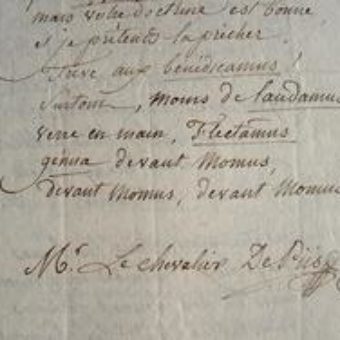 mais votre doctrine est bonne
et je prétends la prêcher.
Trêve aux bénédicamus!
Surtout, moins de laudamus
verre en main, Flectamus
génua devant Momus,
devant Momus, devant Momus
Mr. Le chevalier De Piis